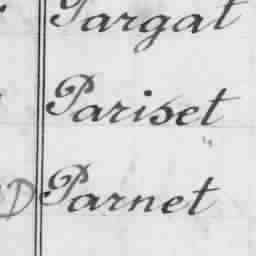 Pargat
Pariset
D Parnet